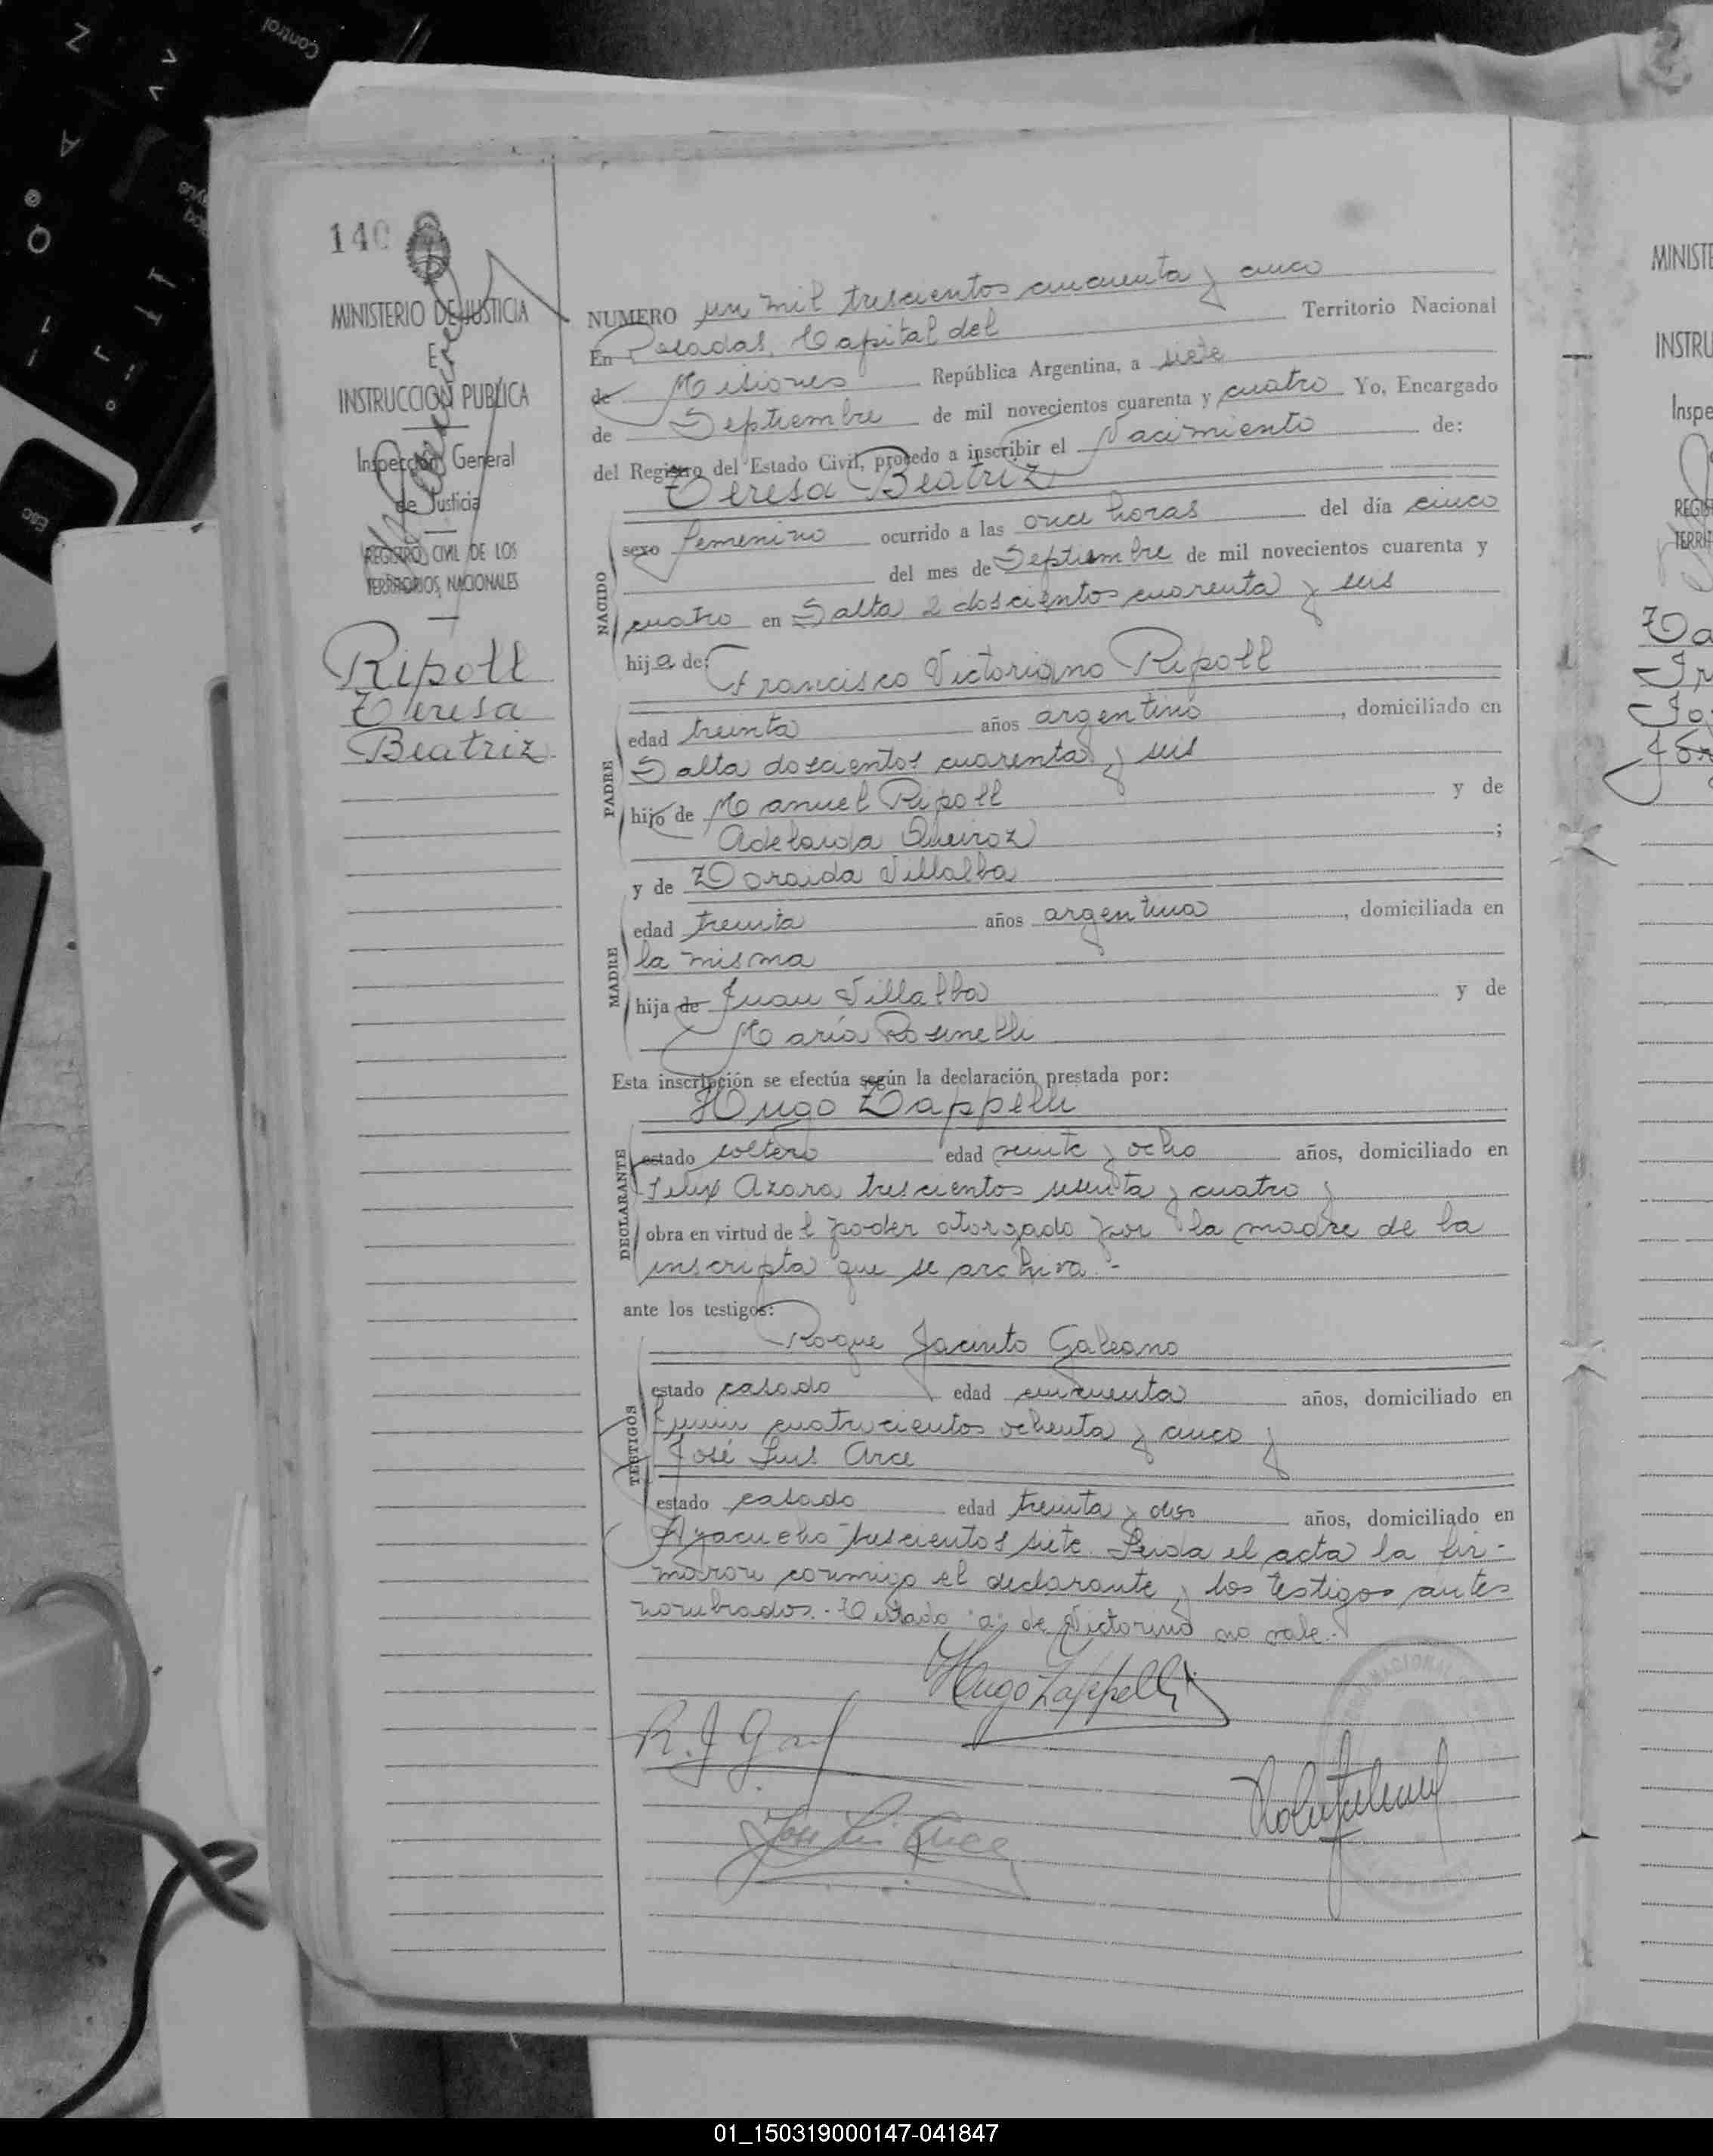 Control
140
MINISTERIO DE JUSTICIA
E
INSTRUCCION PUBLICA
Inspección General
de Justicia
REGISTRO CIVIL DE LOS
TERRITORIOS NACIONALES
Ripoll
Teresa
Beatriz
NUMERO un mil trescientos cincuenta y cinco
En Posadas, Capital del Territorio Nacional
de Misiones República Argentina, a siete
de Septiembre de mil novecientos cuarenta y cuatro Yo, Encargado
del Registro del Estado Civil, procedo a inscribir el Nacimiento de:
Teresa Beatriz
NACIDO
sexo femenino ocurrido a las once horas del día cinco
del mes de Septiembre de mil novecientos cuarenta y
cuatro en Salta 2 doscientos cuarenta y seis
hija de: Francisco Victoriano Ripoll
PADRE
edad treinta años argentino, domiciliado en
Salta doscientos cuarenta y seis
hijo de Manuel Ripoll y de
Adelaida Queiroz;
y de Zoraida Villalba
MADRE
edad treinta años argentina, domiciliada en
la misma
hija de Juan Villalba y de
María Rosinelli
Esta inscripción se efectúa según la declaración prestada por:
Hugo Zappelli
DECLARANTE
estado soltero edad veinte y ocho años, domiciliado en
Felix Azara trescientos sesenta y cuatro y
obra en virtud del poder otorgado por la madre de la
inscripta que se archiva.-
ante los testigos:
Roque Jacinto Galeano
TESTIGOS
estado casado edad cincuenta años, domiciliado en
Junin cuatrocientos ochenta y cinco y
José Luis Arce
estado casado edad treinta y dos años, domiciliado en
Ayacucho trescientos siete. Leida el acta la fir-
maron conmigo el declarante y los testigos antes
nombrados.- Testado "a" de Victorino no vale.-
Hugo Zappelli
R. J. Gal
José Luis Arce
MINISTE
INSTRU
Inspe
REGIS
TERRI
01_150319000147-041847